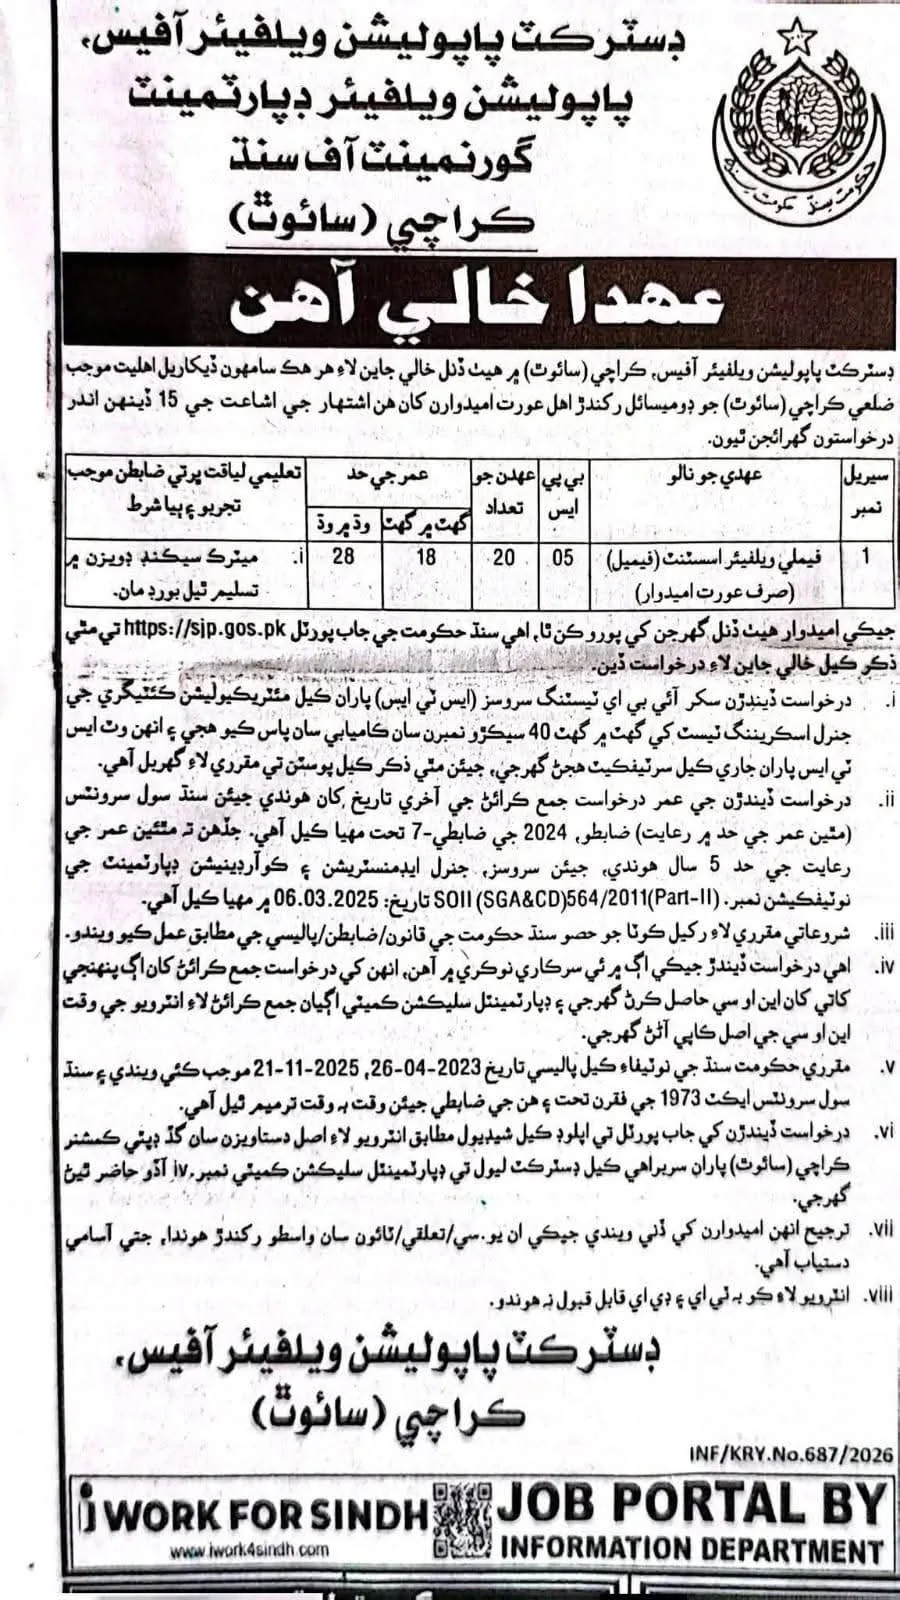 ڊسٽرڪٽ پاپوليشن ويلفيئر آفيس،
پاپوليشن ويلفيئر ڊپارٽمينٽ
گورنمينٽ آف سنڌ
ڪراچي (سائوٿ)
عهدا خالي آهن
ڊسٽرڪٽ پاپوليشن ويلفيئر آفيس، ڪراچي (سائوٿ) ۾ هيٺ ڏنل خالي جاين لاءِ هر هڪ سامهون ڏيکاريل اهليت موجب
ضلعي ڪراچي (سائوٿ) جو ڊوميسائل رکندڙ اهل عورت اميدوارن کان هن اشتهار جي اشاعت جي 15 ڏينهن اندر
درخواستون گهرائجن ٿيون.
سيريل نمبر
عهدي جو نالو
بي پي ايس
عهدن جو تعداد
عمر جي حد
گهٽ ۾ گهٽ
وڌ ۾ وڌ
تعليمي لياقت ڀرتي ضابطن موجب
تجربو ۽ ٻيا شرط
1
فيملي ويلفيئر اسسٽنٽ (فيميل)
(صرف عورت اميدوار)
05
20
18
28
i. ميٽرڪ سيڪنڊ ڊويزن ۾
تسليم ٿيل بورڊ مان.
جيڪي اميدوار هيٺ ڏنل گهرجن کي پورو ڪن ٿا، اهي سنڌ حڪومت جي جاب پورٽل https://sjp.gos.pk تي مٿي
ذڪر ڪيل خالي جاين لاءِ درخواست ڏين.
i. درخواست ڏيندڙن سکر آئي بي اي ٽيسٽنگ سروسز (ايس ٽي ايس) پاران ڪيل مئٽريڪيوليشن ڪئٽيگري جي
جنرل اسڪريننگ ٽيسٽ کي گهٽ ۾ گهٽ 40 سيڪڙو نمبرن سان ڪاميابي سان پاس ڪيو هجي ۽ انهن وٽ ايس
ٽي ايس پاران جاري ڪيل سرٽيفڪيٽ هجڻ گهرجي، جيئن مٿي ذڪر ڪيل پوسٽن تي مقرري لاءِ گهربل آهي.
ii. درخواست ڏيندڙن جي عمر درخواست جمع ڪرائڻ جي آخري تاريخ کان هوندي جيئن سنڌ سول سرونٽس
(مٿين عمر جي حد ۾ رعايت) ضابطو، 2024 جي ضابطي-7 تحت مهيا ڪيل آهي. جڏهن ته مٿئين عمر جي
رعايت جي حد 5 سال هوندي، جيئن سروسز، جنرل ايڊمنسٽريشن ۽ ڪوآرڊينيشن ڊپارٽمينٽ جي
نوٽيفڪيشن نمبر. SOII (SGA&CD)564/2011(Part-II) تاريخ: 06.03.2025 ۾ مهيا ڪيل آهي.
iii. شروعاتي مقرري لاءِ رکيل ڪوٽا جو حصو سنڌ حڪومت جي قانون/ضابطن/پاليسي جي مطابق عمل ڪيو ويندو.
iv. اهي درخواست ڏيندڙ جيڪي اڳ ۾ ئي سرڪاري نوڪري ۾ آهن، انهن کي درخواست جمع ڪرائڻ کان اڳ پنهنجي
کاتي کان اين او سي حاصل ڪرڻ گهرجي ۽ ڊپارٽمينٽل سليڪشن ڪميٽي اڳيان جمع ڪرائڻ لاءِ انٽرويو جي وقت
اين او سي جي اصل ڪاپي آڻڻ گهرجي.
v. مقرري حڪومت سنڌ جي نوٽيفاءِ ڪيل پاليسي تاريخ 2023-04-26، 2025-11-21 موجب ڪئي ويندي ۽ سنڌ
سول سرونٽس ايڪٽ 1973 جي فقرن تحت ۽ هن جي ضابطي جيئن وقت به وقت ترميم ٿيل آهي.
vi. درخواست ڏيندڙن کي جاب پورٽل تي اپلوڊ ڪيل شيڊيول مطابق انٽرويو لاءِ اصل دستاويزن سان گڏ ڊپٽي ڪمشنر
ڪراچي (سائوٿ) پاران سربراهي ڪيل ڊسٽرڪٽ ليول تي ڊپارٽمينٽل سليڪشن ڪميٽي نمبر.iv آڏو حاضر ٿيڻ
گهرجي.
vii. ترجيح انهن اميدوارن کي ڏني ويندي جيڪي ان يو.سي/تعلقي/ٽائون سان واسطو رکندڙ هوندا، جتي آسامي
دستياب آهي.
viii. انٽرويو لاءِ ڪو به ٽي اي ۽ ڊي اي قابل قبول نه هوندو.
ڊسٽرڪٽ پاپوليشن ويلفيئر آفيس،
ڪراچي (سائوٿ)
INF/KRY.No.687/2026
i WORK FOR SINDH
www.iwork4sindh.com
JOB PORTAL BY
INFORMATION DEPARTMENT